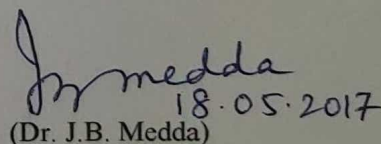 medda
18.05.2017
(Dr. J.B. Medda)